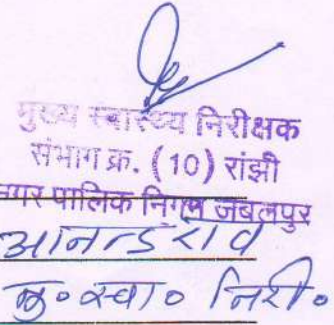 मुख्य स्वास्थ्य निरीक्षक
संभाग क्र. (10) रांझी
नगर पालिक निगम जबलपुर
आनन्द राव
मु० स्वा० निरी०